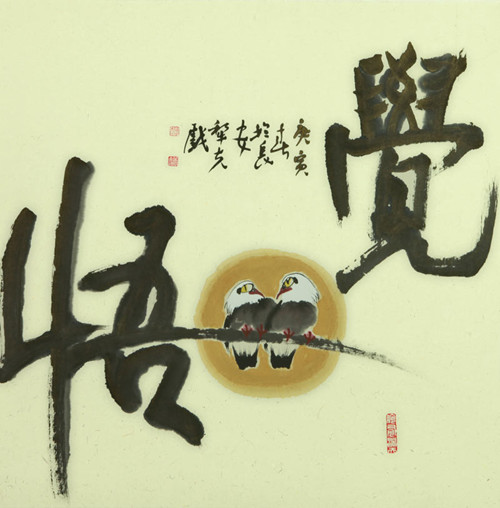 覺
悟
庚寅
春
於長
安
犁克
戲